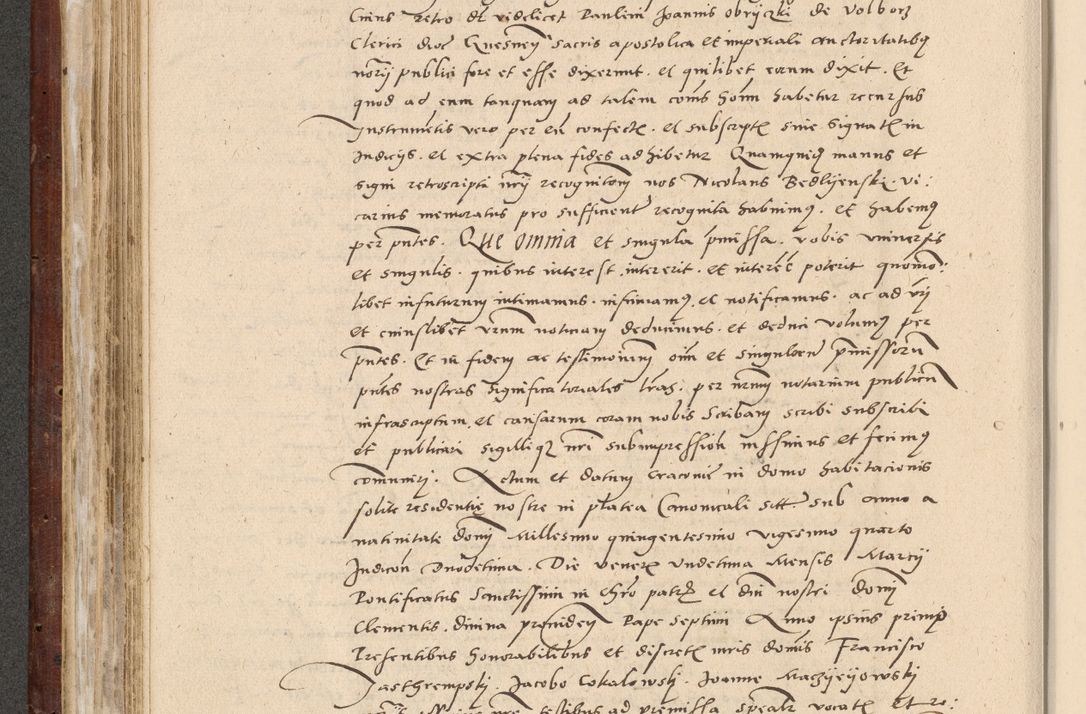 Cuius retro dt videlicet Paulini Joannis Obryczki de Volborz
Clerici dioc Gnesnen sacris apostolica et imperiali auctoritatibq
norij publici fore et esse dixerunt . et quilibet eorum dixit . Et
quod ad eum tanquam ad talem coīs hoim habetur recursus
Instrumetis vero per eū confectꝭ . et subscriptꝭ sive signatꝭ in
Indicijs . et extra plena fides adhibetur Quamquidq manus et
signi retroscripti nrij recognitionj nos Nicolaus Bedlyenski . vi:
carius memoratus pro sufficient recognita habuimq . et habemq
per pntes . Que omnia et singula pmissa . vobis universis
et singulis . quibus interest . intererit . et interēe poterit quomo:
libet infuturum intimamus . insinuamq . et notificamus . ac ad vrj
et cuiuslibet vrum noticiam deducimus . et deduci volumq per
pntes . Et in fidem ac testimonium oīm et singulorū pmissorū
pntes nostras significatoriales lras . per nrum notarium publicū
infrascriptum . et causarum coram nobis scribam scribi subscribi
et publicari sigilliqꝫ nri subimpressiōn iussimus et fecimq
comuniri . Actum et datum Cracovie in domo habitacionis
solite residentie nostre in platea Canonicali sitt . sub anno a
nativitate domj Millesimo quingentesimo vigesimo quarto
Indicōn duodecima . Die veneris undecima Mensis Marcij
Pontificatus Sanctissimi in chro patrꝭ et dni nostri domj
Clementis . divina providen Pape septimi Anno ipsius primo
Presentibus honorabilibus et discretꝭ viris domīs Francisco
Jasthrempski . Jacobo Cokalowski . Joanne Maczyeyowski
testibus ad premissa spealr vocatꝭ et ro: